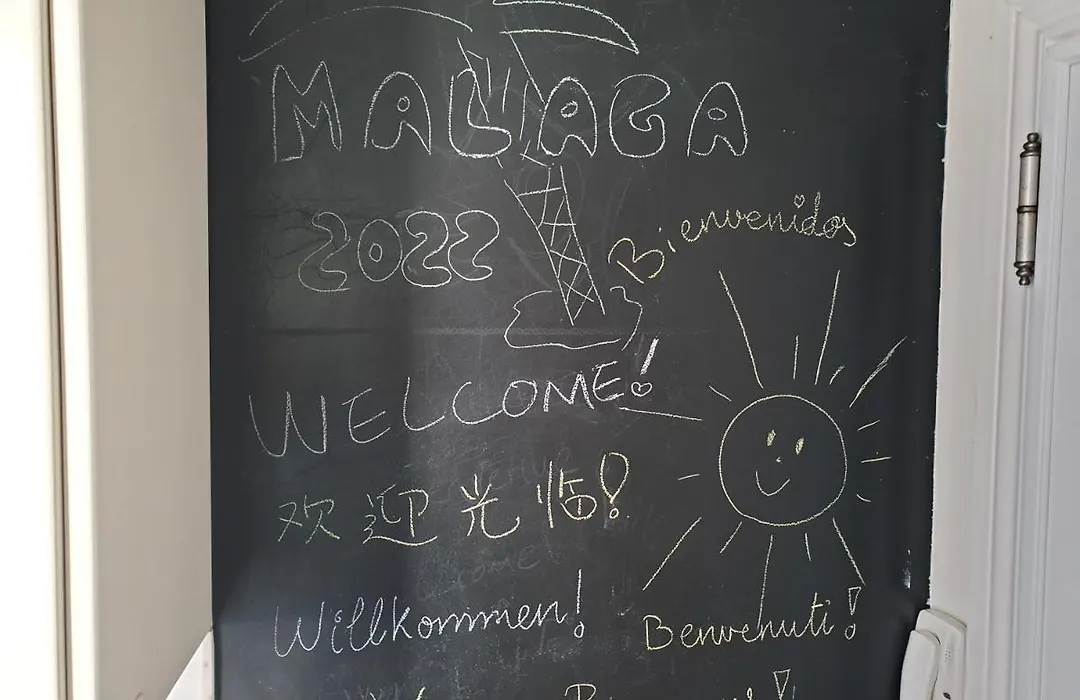 MALAGA
2022
Bienvenidos
WELCOME!
欢迎光临!
Willkommen!
Benvenuti!